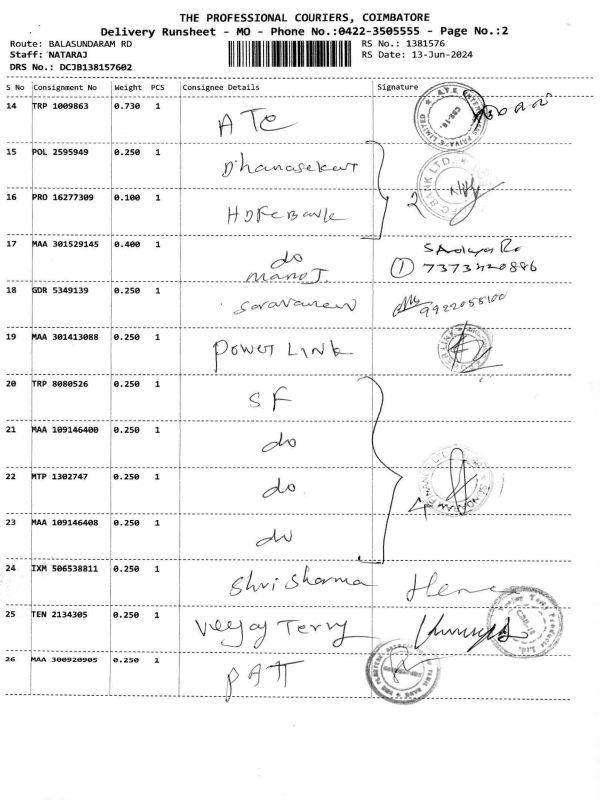 THE PROFESSIONAL COURIERS, COIMBATORE
Delivery Runsheet - MO - Phone No.:0422-3505555 - Page No.:2
Route: BALASUNDARAM RD
RS No.: 1381576
Staff: NATARAJ
RS Date: 13-Jun-2024
DRS No.: DCJB138157602
S No Consignment No Weight PCS Consignee Details Signature
14 TRP 1009863 0.730 1 ATC
15 POL 2595949 0.250 1 Dhanasekar
16 PRO 16277309 0.100 1 HDFC Bank 2
17 MAA 301529145 0.400 1 do
Mano J.
1 7373420886
18 GDR 5349139 0.250 1 Saravanan 9922055100
19 MAA 301413088 0.250 1 Power LINK
20 TRP 8080526 0.250 1 SF
21 MAA 109146400 0.250 1 do
22 MTP 1302747 0.250 1 do
23 MAA 109146408 0.250 1 do
4
24 IXM 506538811 0.250 1 Shri Sharma
25 TEN 2134305 0.250 1 Veejay Terry
26 MAA 300920905 0.250 1 PATT